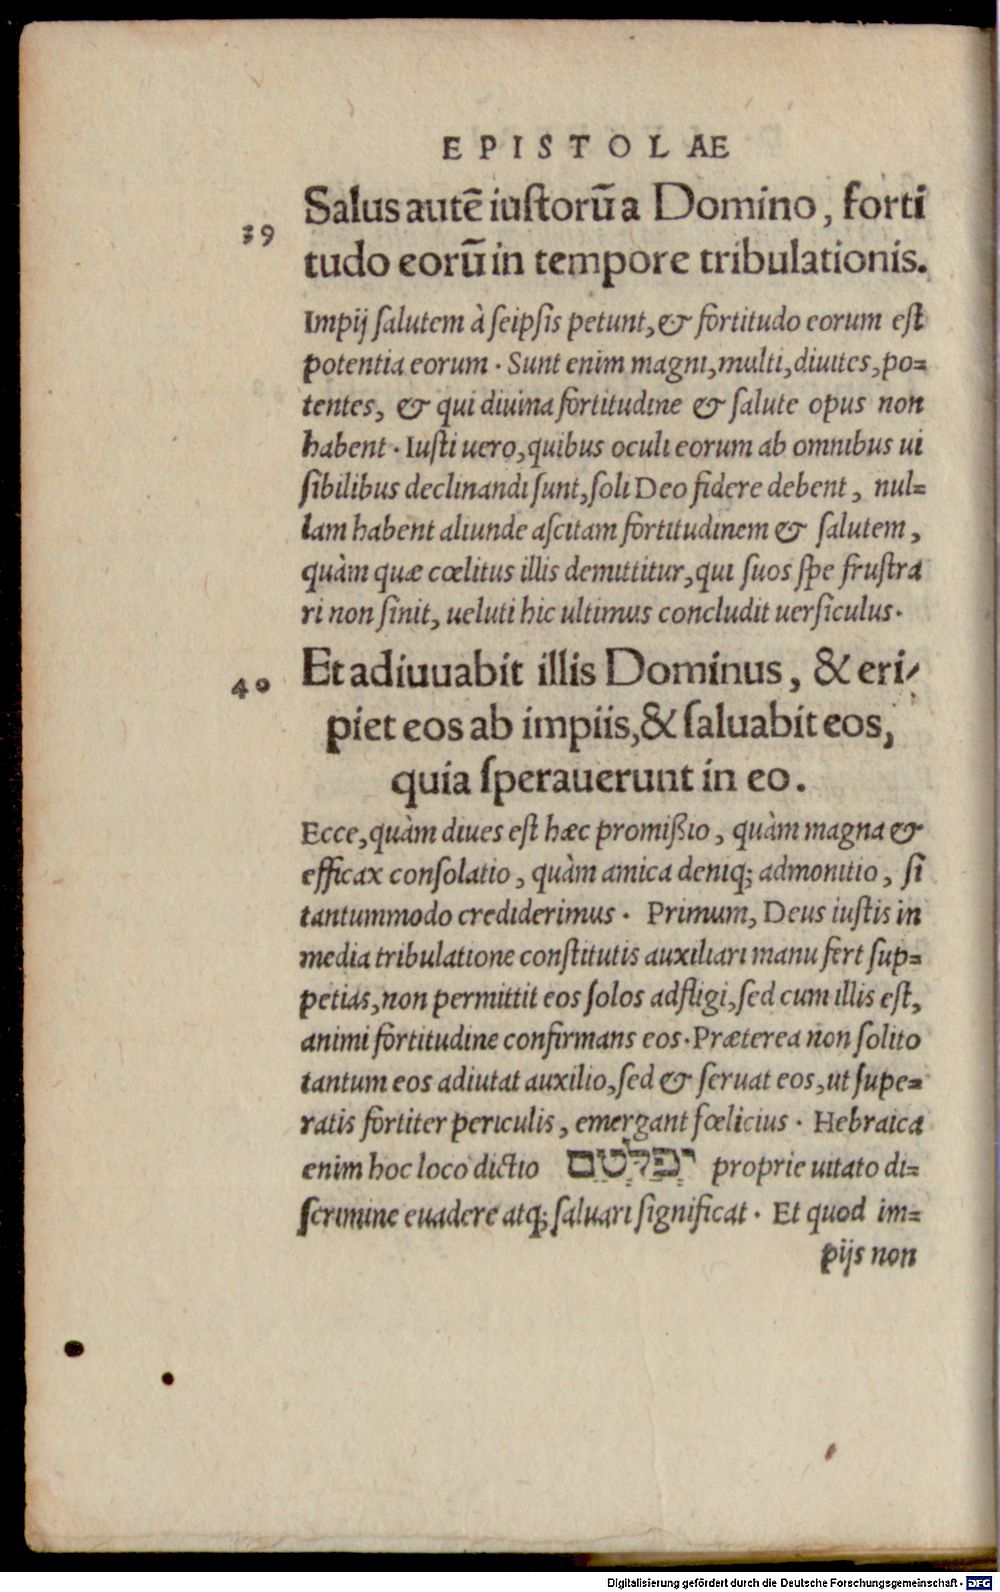 EPISTOLAE
Salus autē iustorū a Domino, forti
39
tudo eorū in tempore tribulationis.
Impij ſalutem à ſeipſis petunt, & fortitudo eorum eſt
potentia eorum. Sunt enim magni, multi, diuites, po=
tentes, & qui diuina fortitudine & ſalute opus non
habent. Iuſti uero, quibus oculi eorum ab omnibus ui
ſibilibus declinandi ſunt, ſoli Deo fidere debent, nul=
lam habent aliunde aſcitam fortitudinem & ſalutem,
quàm quæ cœlitus illis demittitur, qui ſuos ſpe fruſtra
ri non ſinit, ueluti hic ultimus concludit uerſiculus.
40
Et adiuuabit illis Dominus, & eri/
piet eos ab impiis, & ſaluabit eos,
quia ſperauerunt in eo.
Ecce, quàm diues eſt hæc promißio, quàm magna &
efficax conſolatio, quàm amica deniq; admonitio, ſi
tantummodo crediderimus. Primum, Deus iuſtis in
media tribulatione conſtitutis auxiliari manu fert ſup=
petias, non permittit eos ſolos adfligi, ſed cum illis eſt,
animi fortitudine confirmans eos. Præterea non ſolito
tantum eos adiutat auxilio, ſed & ſeruat eos, ut ſupe=
ratis fortiter periculis, emergant fœlicius. Hebraica
enim hoc loco dictio יְפַלְּטֵם proprie uitato di=
ſcrimine euadere atq; ſaluari ſignificat. Et quod im=
pijs non
Digitalisierung gefördert durch die Deutsche Forschungsgemeinschaft - DFG